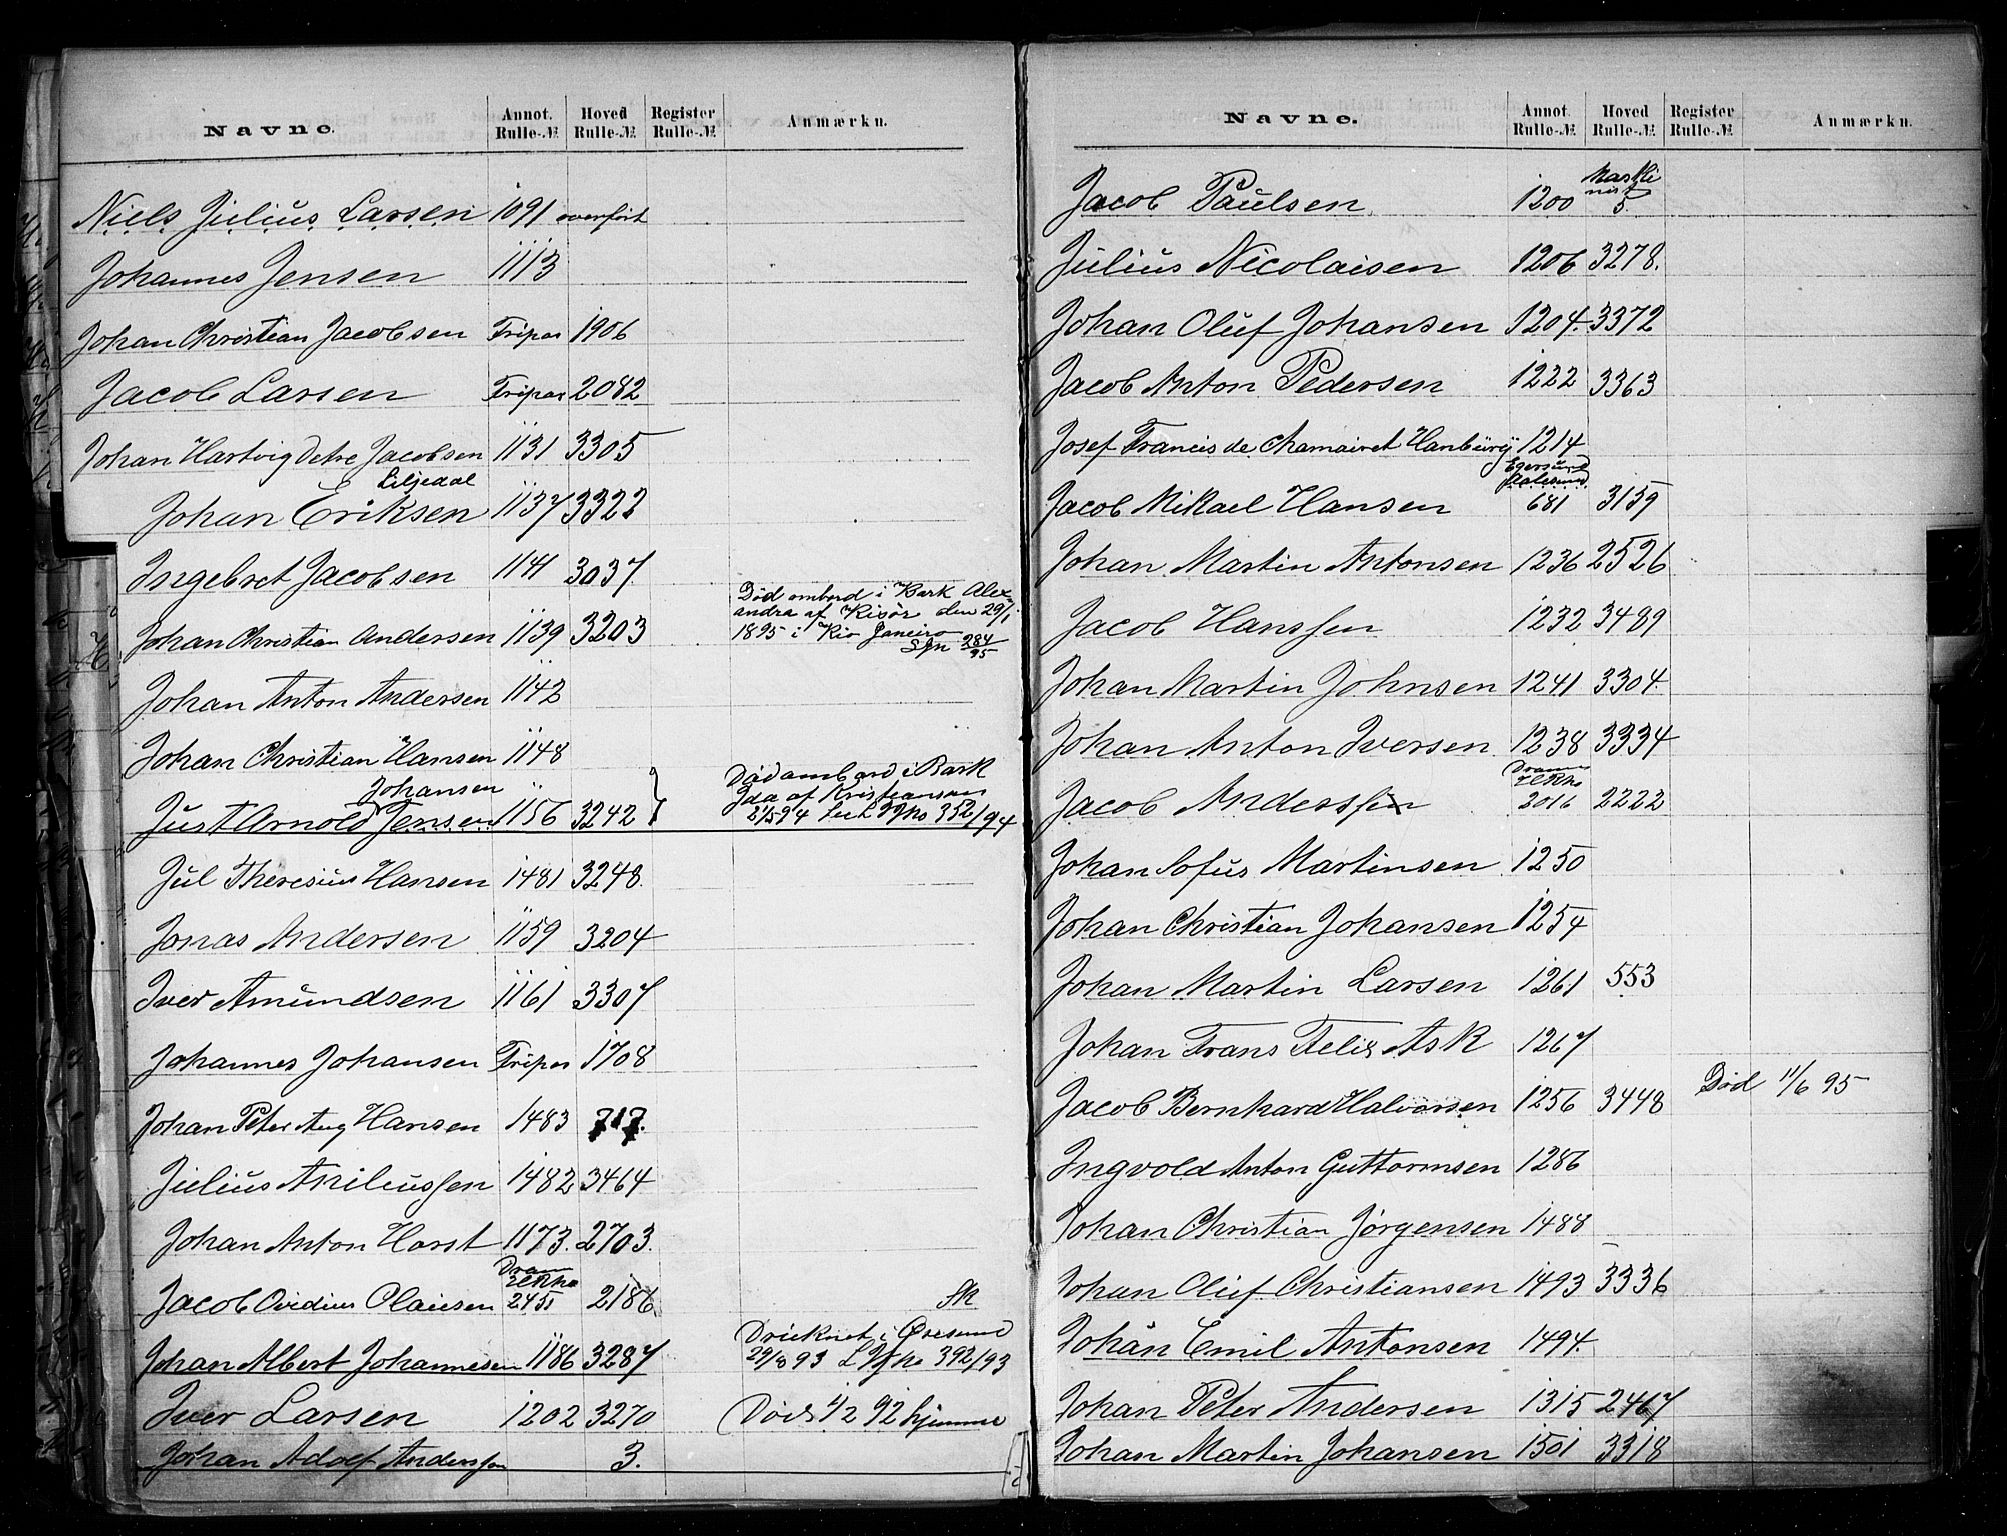 Navne. Annot. Rulle-№ Hoved Rulle-№ Register Rulle-№ Anmærkn.
Niels Julius Larsen 1091 overført
Johannes Jensen 1113
Johan Christian Jacobsen Fripas 1906
Jacob Larsen Fripas 2082
Johan Hartvig Detre Jacobsen 1131 3305
Liljedal
Johan Eriksen 1137 3322
Ingebret Jacobsen 1141 3037
Død ombord i Bark Alex
andra af Risør den 29/1
Johan Christian Andersen 1139 3203 1895 i Rio Janeiro
284/95
Johan Anton Andersen 1142
Johan Christian Hansen 1148
Johansen Død ombord i Bark
Ida af Kristiansan
Just Arnold Jensen 1156 3242 352/94
Jul Theresius Hansen 1481 3248.
Jonas Andersen 1159 3204
Iver Amundsen 1161 3307
Johannes Johansen Fripas 1708
Johan Peter Aug Hansen 1483 717.
Julius Aniliussen 1482 3464
Johan Anton Horst 1173. 2703.
Dram
Jacob Ovidius Olausen 2451 2186
Druknet i Øresund
Johan Albert Johannesen 1186 3287 29/8 93 392/93
Iver Larsen 1202 3270 Død 1/2 92 hjemme
Johan Adolf Anderssen 3.
Navne. Annot. Rulle-№ Hoved Rulle-№ Register Rulle-№ Anmærkn.
Jacob Paulsen 1200 Maski
nist
5.
Julius Nicolaisen 1206 3278.
Johan Oluf Johansen 1204. 3372
Jacob Anton Pedersen 1222 3363
Josef Francis de Chamairet Hanbury 1214
Egersund
Aalesund
Jacob Mikael Hansen 681 3159
Johan Martin Antonsen 1236 2526
Jacob Hanssen 1232 3489
Johan Martin Johnsen 1241 3304.
Johan Anton Iversen 1238 3334
Jacob Anderssen 2016 2222
Johan Sofus Martinsen 1250
Johan Christian Johansen 1254
Johan Martin Larsen 1261 553
Johan Frans Felix Ask 1267
Jacob Bernhard Halvorsen 1256 3448 Død 11/6 95
Ingvold Anton Guttormsen 1286
Johan Christian Jørgensen 1488
Johan Oluf Christiansen 1493 3336
Johan Emil Antonsen 1494.
Johan Peter Andersen 1315 2467
Johan Martin Johansen 1501 3318